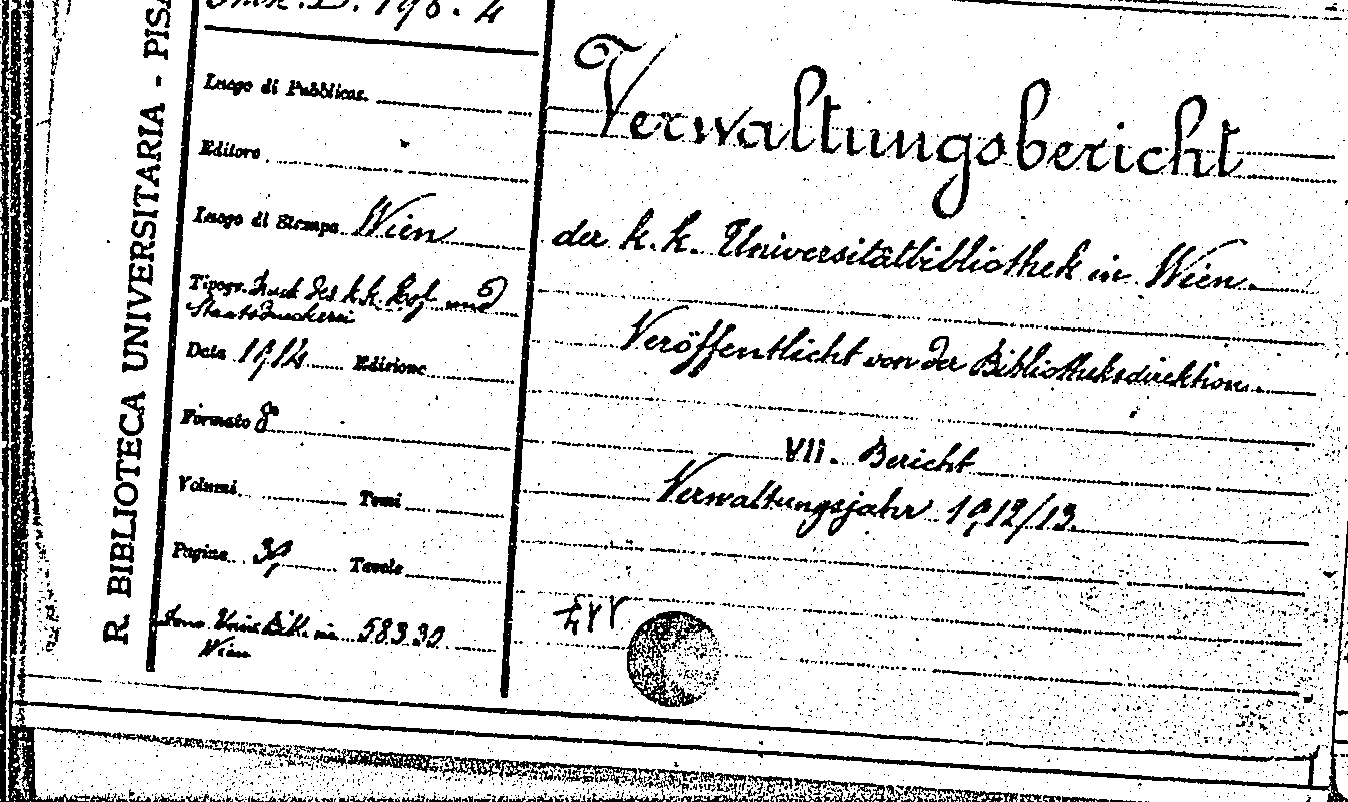 R. BIBLIOTECA UNIVERSITARIA - PISA
Luogo di Pubblicaz.
Editore
Luogo di Stampa Wien
Tipogr. Druck des k.k. Hof und
Staatsdruckerei
Data 1914 Edizione
Formato 8°
Volumi Tomi
Pagine 39 Tavole
Dono Univ. Bibl. in 58330
Wien
Verwaltungsbericht
der k. k. Universitätbibliothek in Wien.
Veröffentlicht von der Bibliotheksdirektion.
VII. Bericht
Verwaltungsjahr 1912/13.